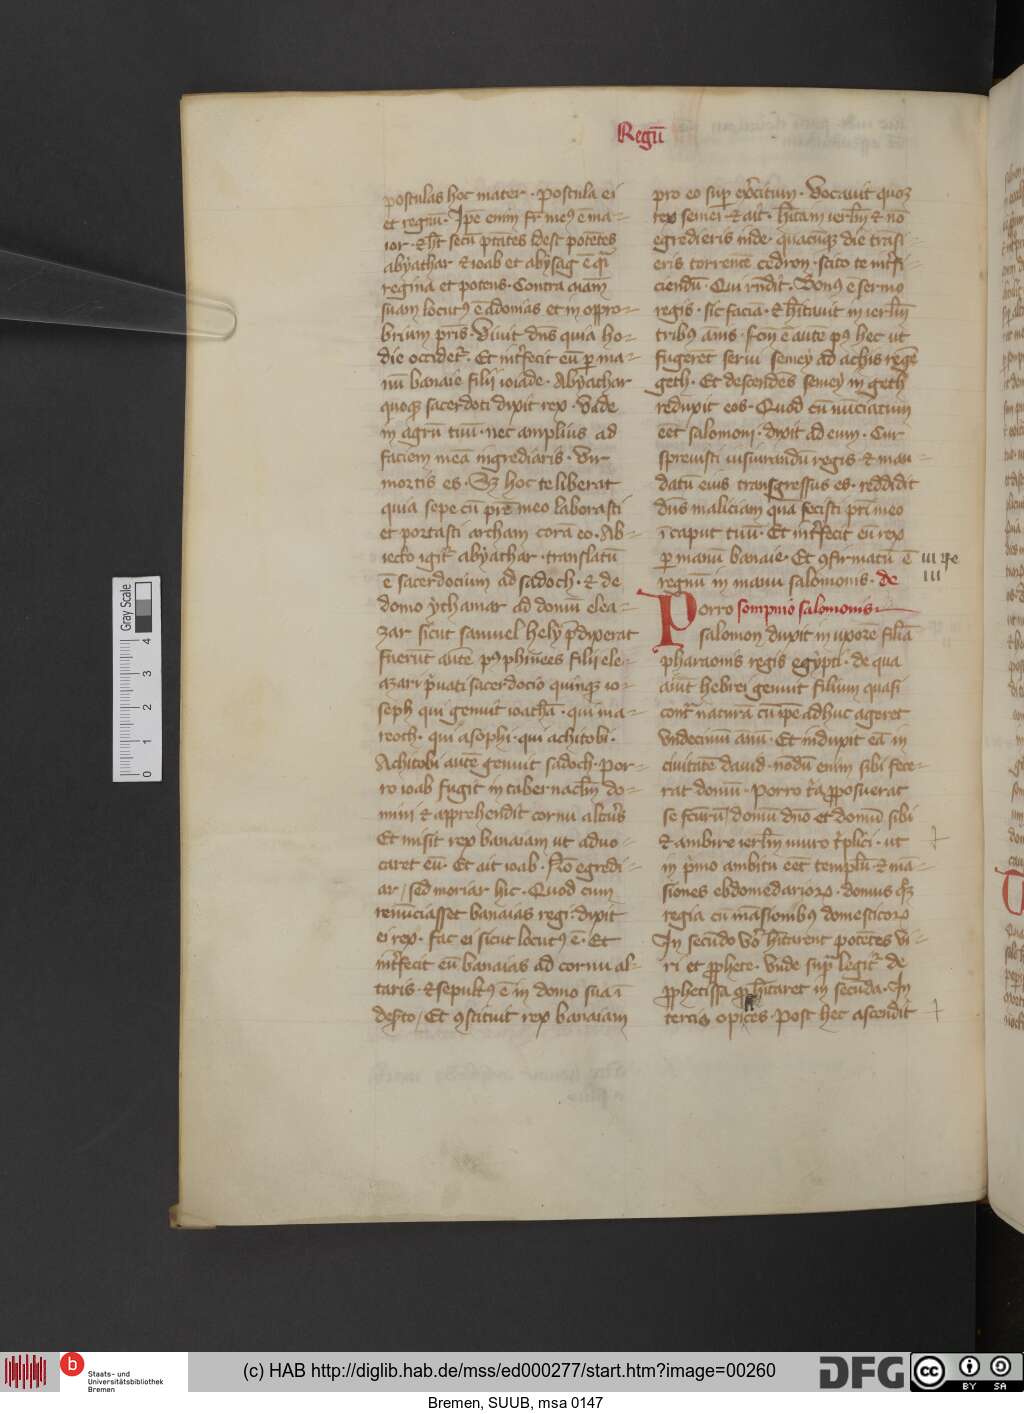 Regū
postulas hoc mater · Postula ei
et regnū · Ip̄e enim fr̄ meꝯ ē ma=
ior · ⁊ hꝫ secū ptātes idest potētes
abyathar ⁊ ioab et abysag ē q̄i
regina et potens · Contra aīam
suam locutꝯ ē adonias et in oppro=
brium pris · Viuit dn̄s quia ho=
die occidetᷣ · Et intᷣfecit eū ꝑ ma=
nū banaie filij ioiade · Abyathar
quoqꝫ sacerdoti dixit rex · Vade
in agrū tuū · nec amplius ad
faciem meā ingrediaris · Vir
mortis es · Sꝫ hoc te liberat
quia sepe cū pr̄e meo laborasti
et portasti archam corā eo · Ab=
iecto igitᷣ abyathar · translatū
ē sacerdocium ad sadoch · ⁊ de
domo ythamar ad domū elea=
zar sicut samuel hely p̄dixerat
fuerūt autē pꝯ phinees filij ele=
azari pͥuati sacerdocio quinqꝫ io=
seph qui genuit ioathā · qui ma=
reoth · qui asophi · qui achitobi ·
Achitobi autē genuit sadoch · Por=
ro ioab fugit in tabernaclm̄ do=
mini ⁊ apprehendit cornu altaris
Et misit rex banaiam ut aduo=
caret eū · Et ait ioab · Nō egredi=
ar / sed moriar hic · Quod cum
renūciasset banaias regi · dixit
ei rex · fac ei sicut locutꝯ ē · Et
intᷣfecit eū banaias ad cornu al=
taris · ⁊ sepultꝯ ē in domo sua ī
desᵉto / Et ꝯstituit rex banaiam
pro eo sup exᵉcitum · Vocauit quoqꝫ
rex semei · ⁊ ait · hītam ierlm̄ ⁊ nō
egredieris inde · quacūqꝫ die trāsi=
eris torrentē cedron · scito te intᷣfi=
ciendū · Qui rn̄dit · Bonꝯ ē sermo
regis · sic faciā · ⁊ hītauit in ierlm̄
tribꝯ ānis · fcm̄ ē autē pꝯ hec ut
fugeret serui semey ad achis regē
geth · Et descendēs semey in geth
reduxit eos · Quod cū nūciatum
eēt salomoni · dixit ad eum · Cur
spreuisti iusiurandū regis ⁊ man=
datū eius transgressus es · reddidit
dn̄s maliciam quā fecisti pri meo
ī caput tuū · Et intᷣfecit eū rex
ꝑ manū banaie · Et ꝯfirmatū ē
regnū in manu salomonis · de
iii Re
iii
Porro sompnio salomonis
salomon duxit in uxorē filiā
pharaonis regis egypti · de qua
aiūt hebrei genuit filium quasi
contᷓ naturā cū ip̄e adhuc ageret
vndecimū ānū · Et induxit eā in
ciuitatē dauid · nōdū enim sibi fece=
rat domū · Porro ita ꝓposuerat
se fcūrū domū dn̄o et domū sibi
⁊ ambire ierlm̄ muro tᷣplici · ut
in pͥmo ambitu eēt templū ⁊ mā=
siones ebdomedarioꝝ · domus qꝫ
regia cū māsionibꝯ domesticoꝝ
In secūdo vͦo hītarent potētes vi=
ri et ꝓphete · Vnde supᷓ legitᷣ de
ꝓphetissa qꝫ hītaret in secūda · In
tercio opices · Post hec ascendit
Gray Scale
4
3
2
1
0
Staats- und
Universitätsbibliothek
Bremen
(c) HAB http://diglib.hab.de/mss/ed000277/start.htm?image=00260
DFG
cc BY SA
Bremen, SUUB, msa 0147